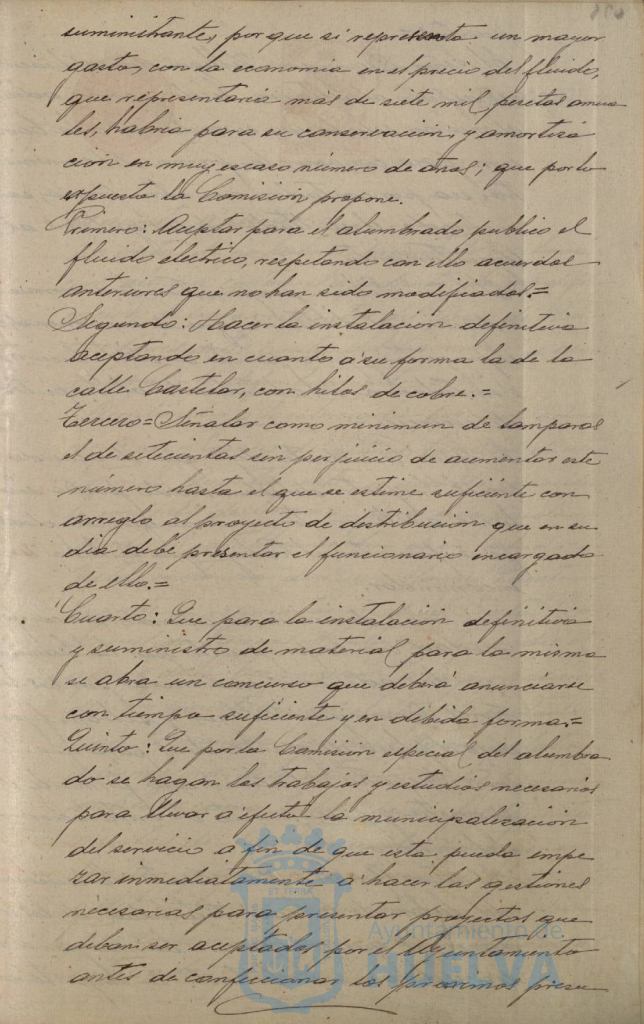 suministrante, por que si representa un mayor
gasto, con la economia en el precio del fluido,
que representaria más de siete mil pesetas anua
les, habria para su conservación, y amortiza
ción en muy escaso número de años; que por lo
expuesto la Comisión propone.
Primero: Aceptar para el alumbrado publico el
fluido electrico, respetando con ello acuerdos
anteriores que no han sido modificados.=
Segundo: Hacer la instalacion definitiva
aceptando en cuanto á su forma la de la
calle Castelar, con hilos de cobre.=
Tercero= Señalar como minimun de lamparas
el de setecientas sin perjuicio de aumentar este
número hasta el que se estime suficiente con
arreglo al proyecto de distribución que en su
dia debe presentar el funcionario encargado
de ello.=
Cuarto: Que para la instalación definitiva
y suministro de material para la misma
se abra un concurso que deberá anunciarse
con tiempo suficiente y en debida forma.=
Quinto: Que por la Comisión especial del alumbra
do se hagan los trabajos y estudios necesarios
para llevar á efecto la municipalización
del servicio a fin de que esta pueda empe
zar inmediatamente á hacer las gestiones
necesarias para presentar proyectos que
deban ser aceptados por el Ayuntamiento
antes de confeccionar los proximos presu
Ayuntamiento de
HUELVA